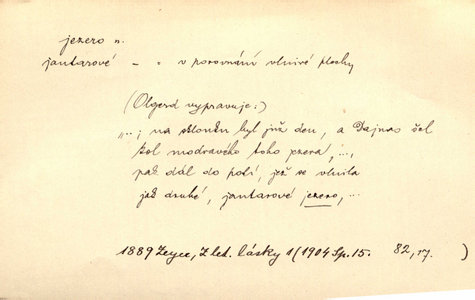 jezero n.
jantarové – – v porovnání vlnivé plochy
(Olgerd vypravuje:)
"…; na sklonku byl již den, a Dajnas šel
kol modravého toho jezera, …,
pak dál do polí, jež se vlnila
jak druhé, jantarové jezero, …
1889 Zeyer, Z let. lásky 1 (1904 Sp. 15. 82, )